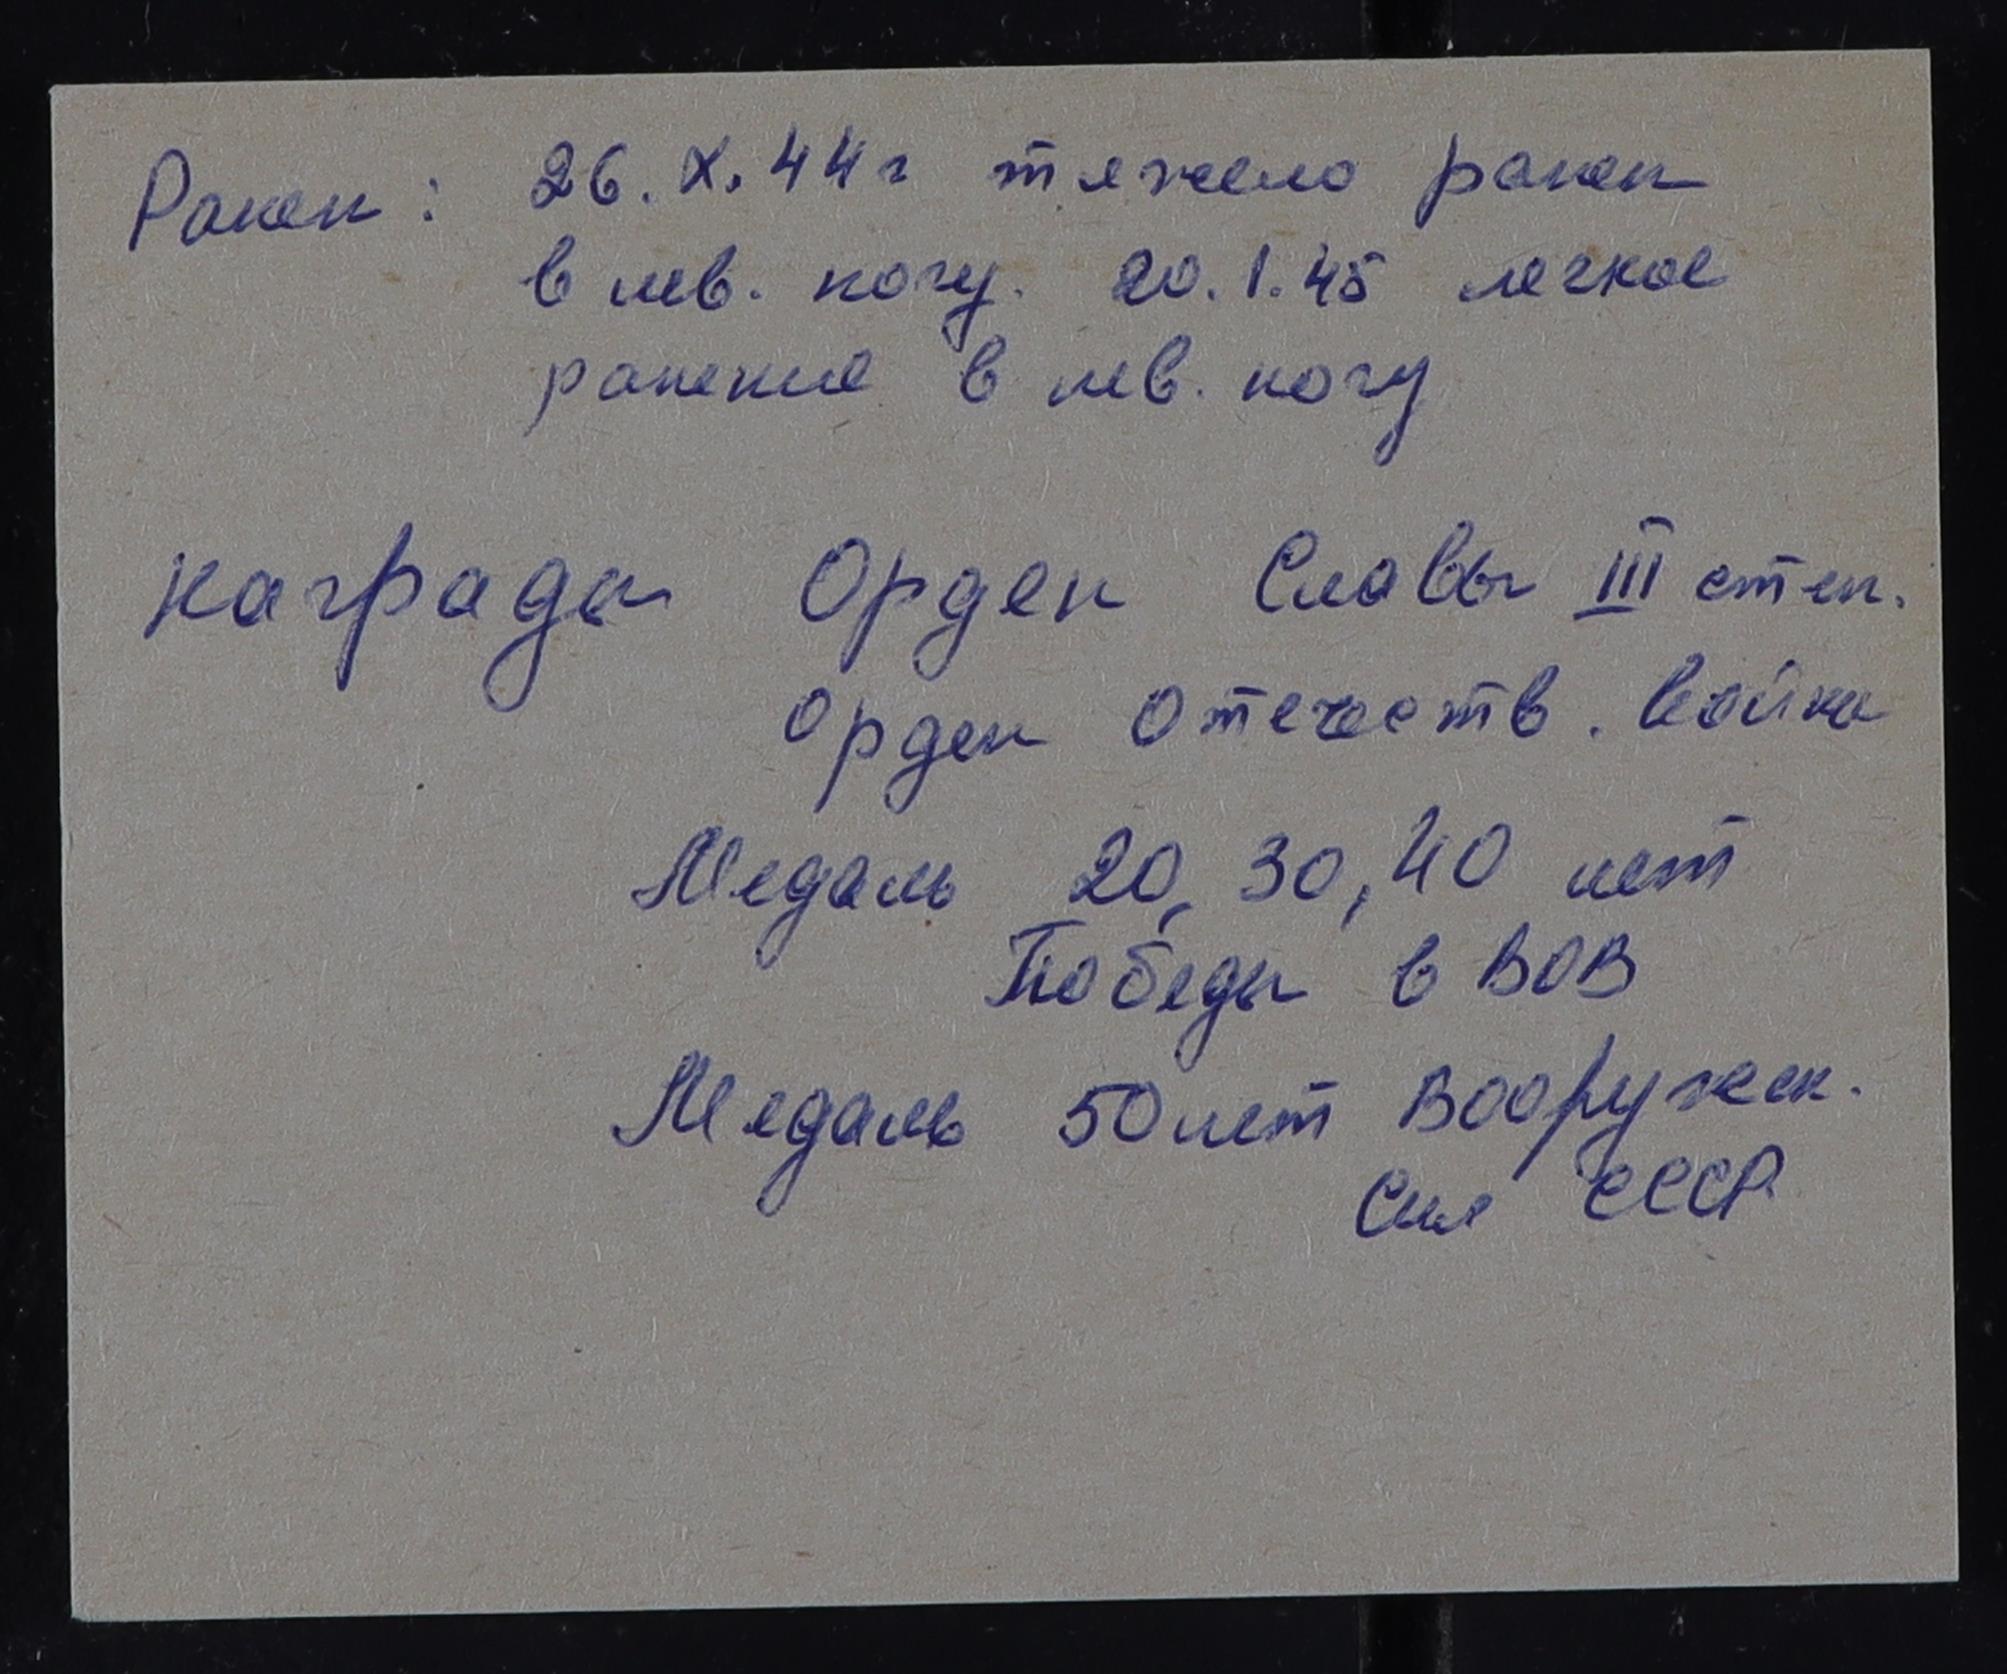 Ранен: 26.X.44г тяжело ранен
в лев. ногу. 20.1.45 легкое
ранение в лев. ногу
награды Орден Славы III степ.
орден Отечеств. война
Медаль 20, 30, 40 лет
Победы в ВОВ
Медаль 50 лет Вооружен.
Сил СССР